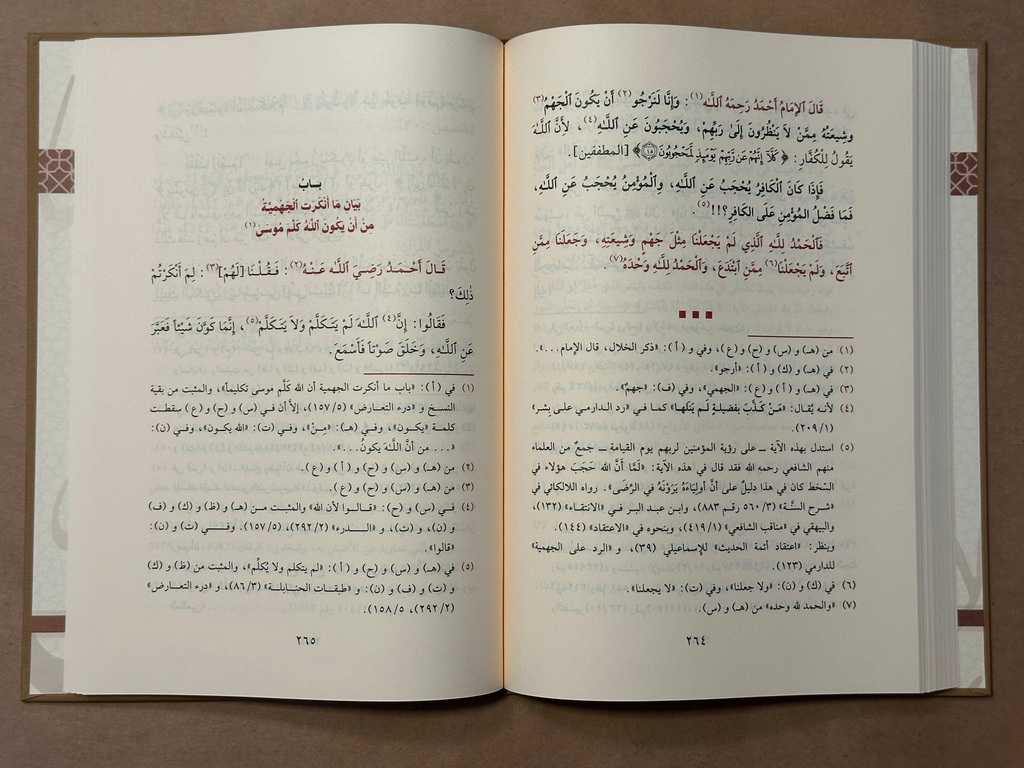 قَالَ الإِمَامُ أَحْمَدُ رَحِمَهُ اللَّـهُ(١): وَإِنَّا لَنَرْجُو(٢) أَنْ يَكُونَ الْجَهْمُ(٣)
وَشِيعَتُهُ مِمَّنْ لاَ يَنْظُرُونَ إِلَىٰ رَبِّهِمْ، وَيُحْجَبُونَ عَنِ اللَّـهِ(٤)، لِأَنَّ اللَّـهَ
يَقُولُ لِلْكُفَّارِ: ﴿كَلَّآ إِنَّهُمْ عَن رَّبِّهِمْ يَوْمَئِذٍ لَّمَحْجُوبُونَ ١٥﴾ [المطففين].
فَإِذَا كَانَ الْكَافِرُ يُحْجَبُ عَنِ اللَّـهِ، وَالْمُؤْمِنُ يُحْجَبُ عَنِ اللَّـهِ،
فَمَا فَضْلُ الْمُؤْمِنِ عَلَى الْكَافِرِ؟!!(٥).
فَالْحَمْدُ لِلَّهِ الَّذِي لَمْ يَجْعَلْنَا مِثْلَ جَهْمٍ وَشِيعَتِهِ، وَجَعَلَنَا مِمَّنِ
اتَّبَعَ، وَلَمْ يَجْعَلْنَا(٦) مِمَّنِ ابْتَدَعَ، وَالْحَمْدُ لِلَّهِ وَحْدَهُ(٧).
(١) من (هـ) و (س) و (ح) و (ع)، وفي و (أ): «ذكر الخلال، قال الإمام...».
(٢) في (هـ) و (ك) و (أ): «أرجو».
(٣) في (هـ) و (أ) و (ع): «الجهمي»، وفي (ف): «جهم».
(٤) لأنه يُقال: «مَنْ كَذَّبَ بفضيلةٍ لَم يَنَلها» كما في «رد الدارمي على بِشر»
(٢٠٩/١).
(٥) استدل بهذه الآية ــ على رؤية المؤمنين لربهم يوم القيامة ــ جمعٌ من العلماء
منهم الشافعي رحمه الله فقد قال في هذه الآية: «لَمَّا أنَّ الله حَجَبَ هؤلاء في
السَّخط كان في هذا دليلٌ على أنَّ أوليَاءَهُ يَرَوْنَهُ في الرِّضَى». رواه اللالكائي في
«شرح السنَّة» (٥٦٠/٣ رقم ٨٨٣)، وابن عبد البر في «الانتقاء» (١٣٢)،
والبيهقي في «مناقب الشافعي» (٤١٩/١)، وبنحوه في «الاعتقاد» (١٤٤).
وينظر: «اعتقاد أئمة الحديث» للإسماعيلي (٣٩)، و «الرد على الجهمية»
للدارمي (١٢٣).
(٦) في (ك) و (ن): «ولا جعلنا»، وفي (ت): «لا يجعلنا».
(٧) «والحمد لله وحده» من (هـ) و (س).
٢٦٤
بـاب
بَيَانِ مَا أَنْكَرَتِ الْجَهْمِيَّةُ
مِنْ أَنْ يَكُونَ اللَّهُ كَلَّمَ مُوسَىٰ(١)
قَـالَ أَحْـمَـدُ رَضِـيَ اللَّـهُ عَـنْـهُ(٢): فَـقُـلْـنَـا [لَهُمْ](٣): لِمَ أَنْكَرْتُمْ
ذٰلِكَ؟
فَقَالُوا: إِنَّ(٤) اللَّـهَ لَمْ يَتَكَلَّمْ وَلاَ يَتَكَلَّمُ(٥)، إِنَّمَا كَوَّنَ شَيْئاً فَعَبَّرَ
عَنِ اللَّـهِ، وَخَلَقَ صَوْتاً فَأَسْمَعَ.
(١) في (أ): «باب ما أنكرت الجهمية أن الله كَلَّم موسى تكليماً»، والمثبت من بقية
النسخ و «درء التعارض» (١٥٧/٥)، إلاَّ أن في (س) و (ح) و (ع) سقطت
كلمة «يكون»، وفي (هـ): «مِنْ»، وفي (ت): «الله يكون»، وفي (ن):
«... من أنَّ اللَّـهَ يكونُ...».
(٢) من (هـ) و (س) و (ح) و (أ) و (ع).
(٣) من (هـ) و (س) و (ح) و (ع).
(٤) في (س) و (ح): «قـالـوا لأن الله» والمثبت مـن (هـ) و (ظ) و (ك) و (ف)
و (ن)، و (ت)، و «الـدرء» (٢٩٢/٢)، (١٥٧/٥). وفـي (ت) و (ن):
«قالوا».
(٥) في (هـ) و (س) و (ح) و (أ): «لم يتكلم ولا يُكلِّم»، والمثبت من (ظ) و (ك)
و (ت) و (ف) و (ن): و «طبقات الحنـابـلـة» (٨٦/٣)، و «درء التعارض»
(٢٩٢/٢)، ١٥٨/٥).
٢٦٥